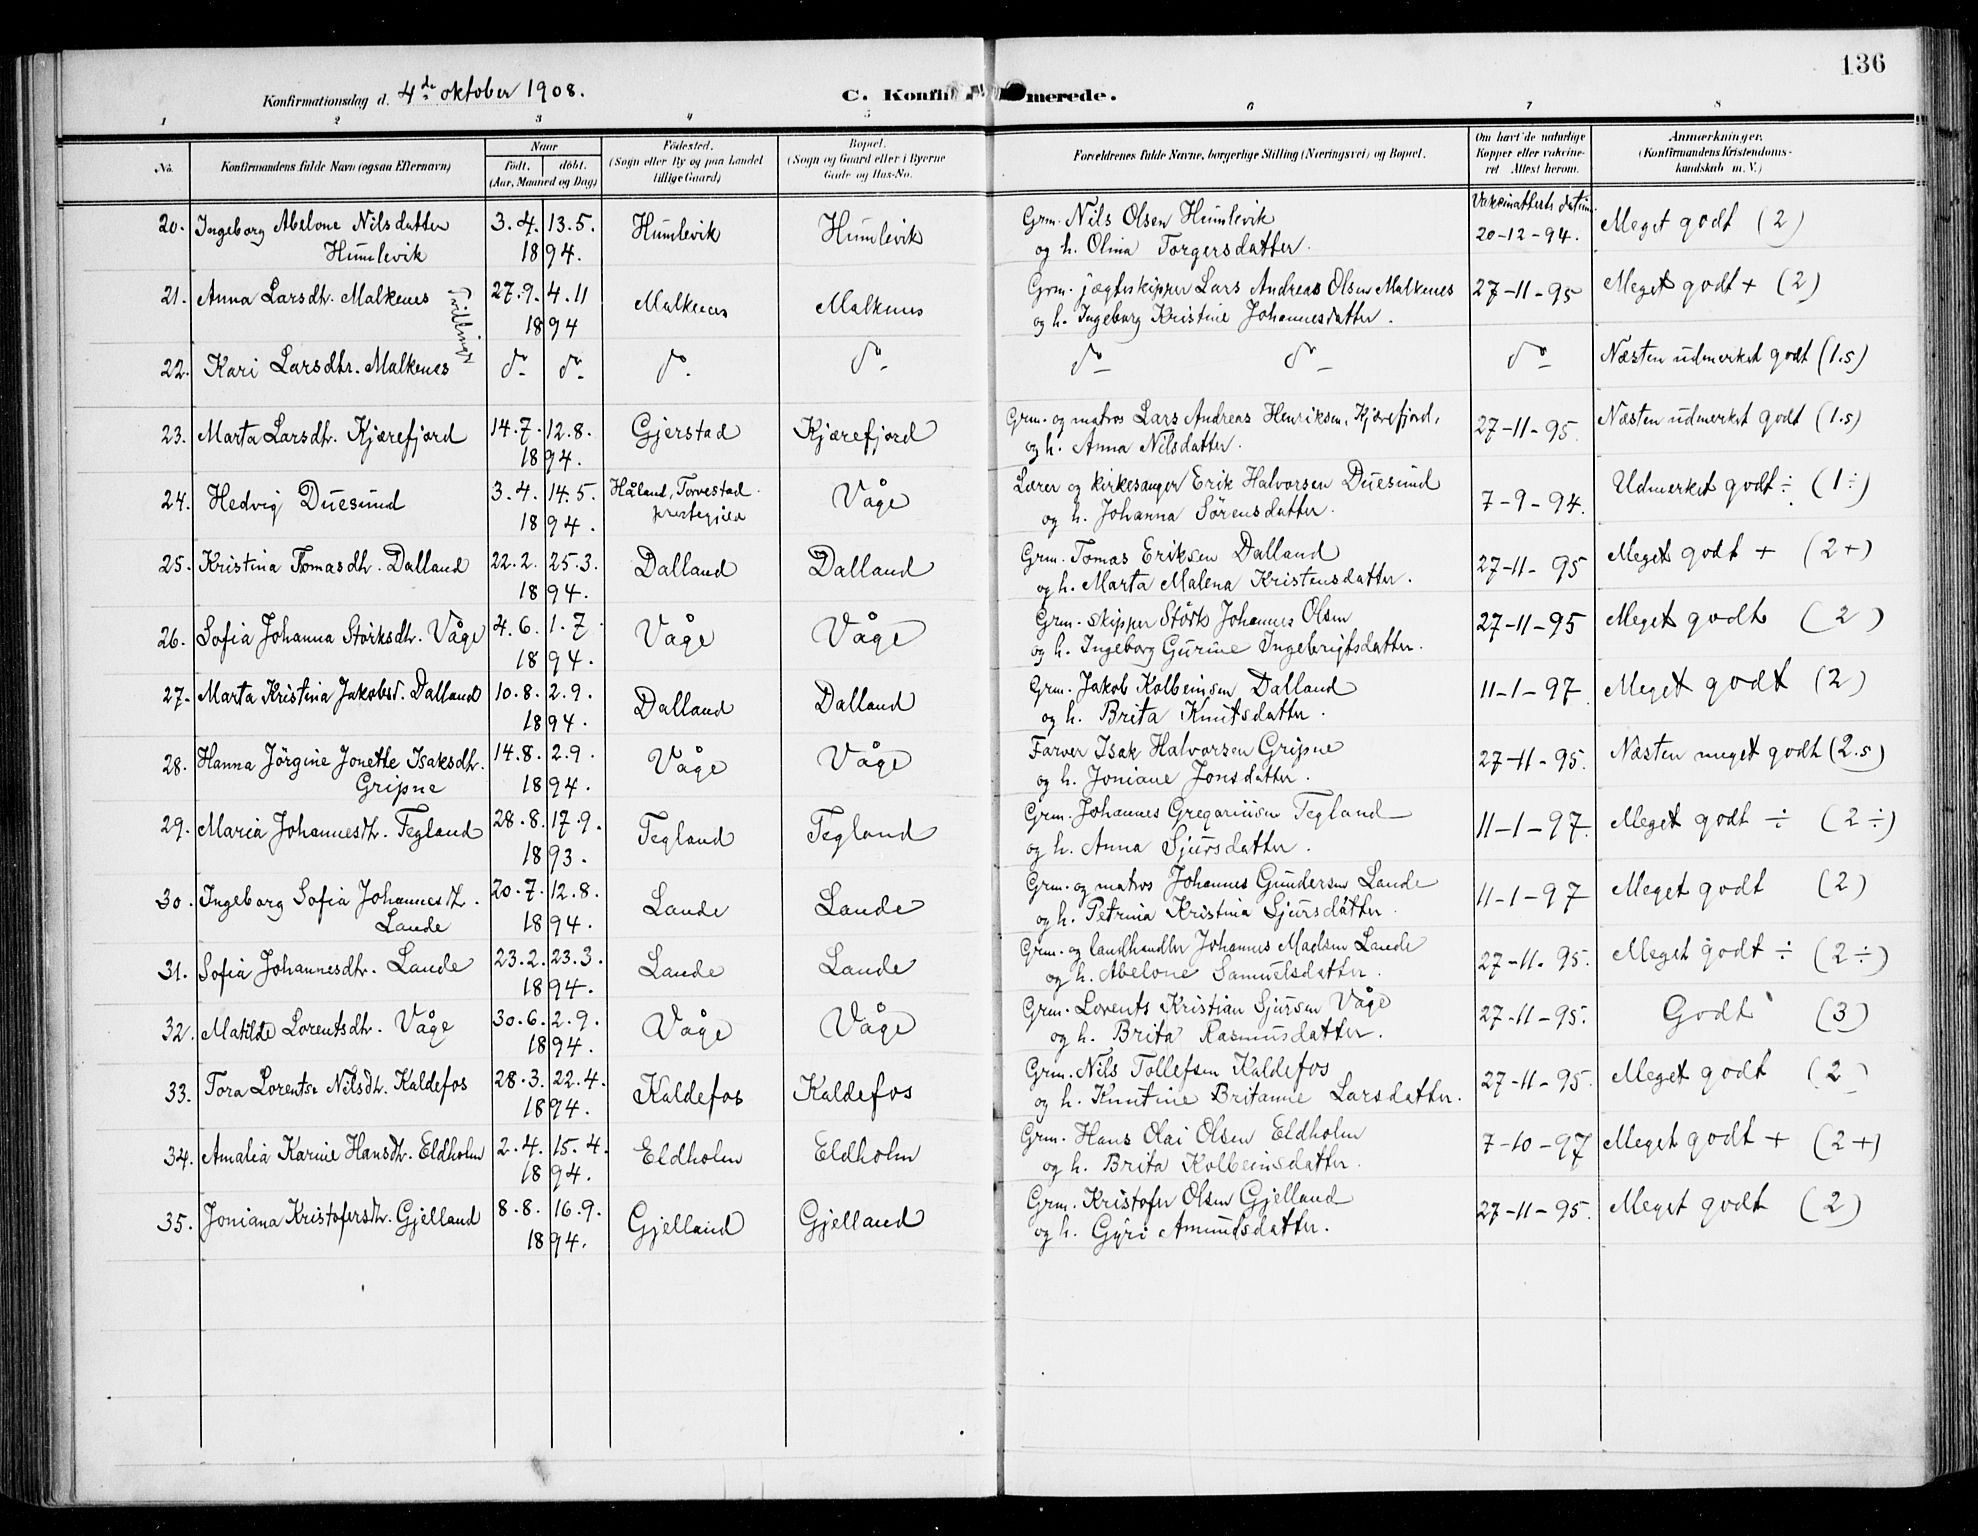 136
Konfirmationsdag d. 4de oktober 1908.
C. Konfir merede.
1 2 3 4 5 6 7 8
No.
Konfirmandens fulde Navn (ogsaa Efternavn)
Naar
født. døbt.
(Aar, Maaned og Dag)
Fødested.
(Sogn eller By og paa Landet
tillige Gaard)
Bopæl.
(Sogn og Gaard eller i Byerne
Gade og Hus-No.
Forældrenes fulde Navne, borgerlige Stilling (Næringsvei) og Bopæl.
Om havt de naturlige
Kopper eller vakcine-
ret Attest herom.
Anmærkninger.
(Konfirmandens Kristendoms-
kundskab m. V.)
Vaksinattests datum
20. Ingeborg Abelone Nilsdatter 3.4. 13.5. Humlevik Humlevik Grm. Nils Olsen Humlevik 20-12-94. Meget godt (2)
Humlevik 1894. og h. Olina Torgersdatter.
21. Anna Larsdtr. Malkenes 27.9. 4.11 Malkenes Malkenes Grm. jægteskipper Lars Andreas Olsen Malkenes 27-11-95 Meget godt + (2)
Tvillinger
1894 og h. Ingeborg Kristine Johannesdatter.
22. Kari Larsdtr. Malkenes do do do do do do do Næsten udmerket godt (1.5)
23. Marta Larsdtr. Kjærefjord 14.7. 12.8. Gjerstad Kjærefjord Grm. og matros Lars Andreas Henriksen, Kjærefjord, 27-11-95. Næsten udmerket godt (1.5)
1894. og h. Anna Nilsdatter.
24. Hedvig Duesund 3.4. 14.5. Håland, Torvestad Våge Lærer og kirkesanger Erik Halvorsen Duesund 7-9-94. Udmerket godt ÷ (1÷)
1894. prestegjeld og h. Johanna Sörensdatter.
25. Kristina Tomasdtr. Dalland 22.2. 25.3. Dalland Dalland Grm. Tomas Eriksen Dalland 27-11-95 Meget godt + (2+)
1894. og h. Marta Malena Kristensdatter.
26. Sofia Johanna Störksdtr. Våge 4.6. 1.7 Våge Våge Grm. skipper Störk Johannes Olsen 27-11-95 Meget godt (2)
1894. og h. Ingeborg Gurine Ingebrigtsdatter.
27. Marta Kristina Jakobsd. Dalland 10.8. 2.9. Dalland Dalland Grm. Jakob Kolbeinsen Dalland 11-1-97 Meget godt (2)
1894. og h. Brita Knutsdatter.
28. Hanna Jörgine Jonette Isaksdtr. 14.8. 2.9. Våge Våge Farver Isak Halvorsen Gripne 27-11-95. Næsten meget godt (2.5)
Gripne 1894. og h. Joniane Jonsdatter.
29. Maria Johannesdtr. Tegland 28.8. 17.9. Tegland Tegland Grm. Johannes Gregoriusen Tegland 11-1-97. Meget godt ÷ (2÷)
1893. og h. Anna Sjursdatter.
30. Ingeborg Sofia Johannesdtr. 20.7. 12.8. Lande Lande Grm. og matros Johannes Gundersen Lande 11-1-97 Meget godt (2)
Lande 1894. og h. Petrina Kristina Sjursdatter.
31. Sofia Johannesdtr. Lande 23.2. 23.3. Lande Lande Grm. og landhandler Johannes Madsen Lande 27-11-95. Meget godt ÷ (2÷)
1894. og h. Abelone Samuelsdatter.
32. Matilde Lorentsdtr. Våge 30.6. 2.9. Våge Våge Grm. Lorents Kristian Sjursen Våge 27-11-95. Godt (3)
1894. og h. Brita Rasmusdatter.
33. Tora Lorentse Nilsdtr. Kaldefos 28.3. 22.4. Kaldefos Kaldefos Grm. Nils Tollefsen Kaldefos 27-11-95. Meget godt (2)
1894. og h. Knutine Britanie Larsdatter.
34. Amalia Karine Hansdtr. Eldholm 2.4. 15.4. Eldholm Eldholm Grm. Hans Olai Olsen Eldholm 7-10-97 Meget godt + (2+)
1894. og h. Brita Kolbeinsdatter.
35. Joniana Kristofersdtr. Gjelland 8.8. 16.9. Gjelland Gjelland Grm. Kristofer Olsen Gjelland 27-11-95. Meget godt (2)
1894. og h. Gyri Amundsdatter.